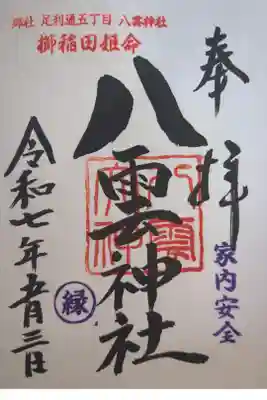 郷社 足利通五丁目 八雲神社
櫛稲田姫命
奉拝
八雲神社
家内安全
縁
令和七年五月三日